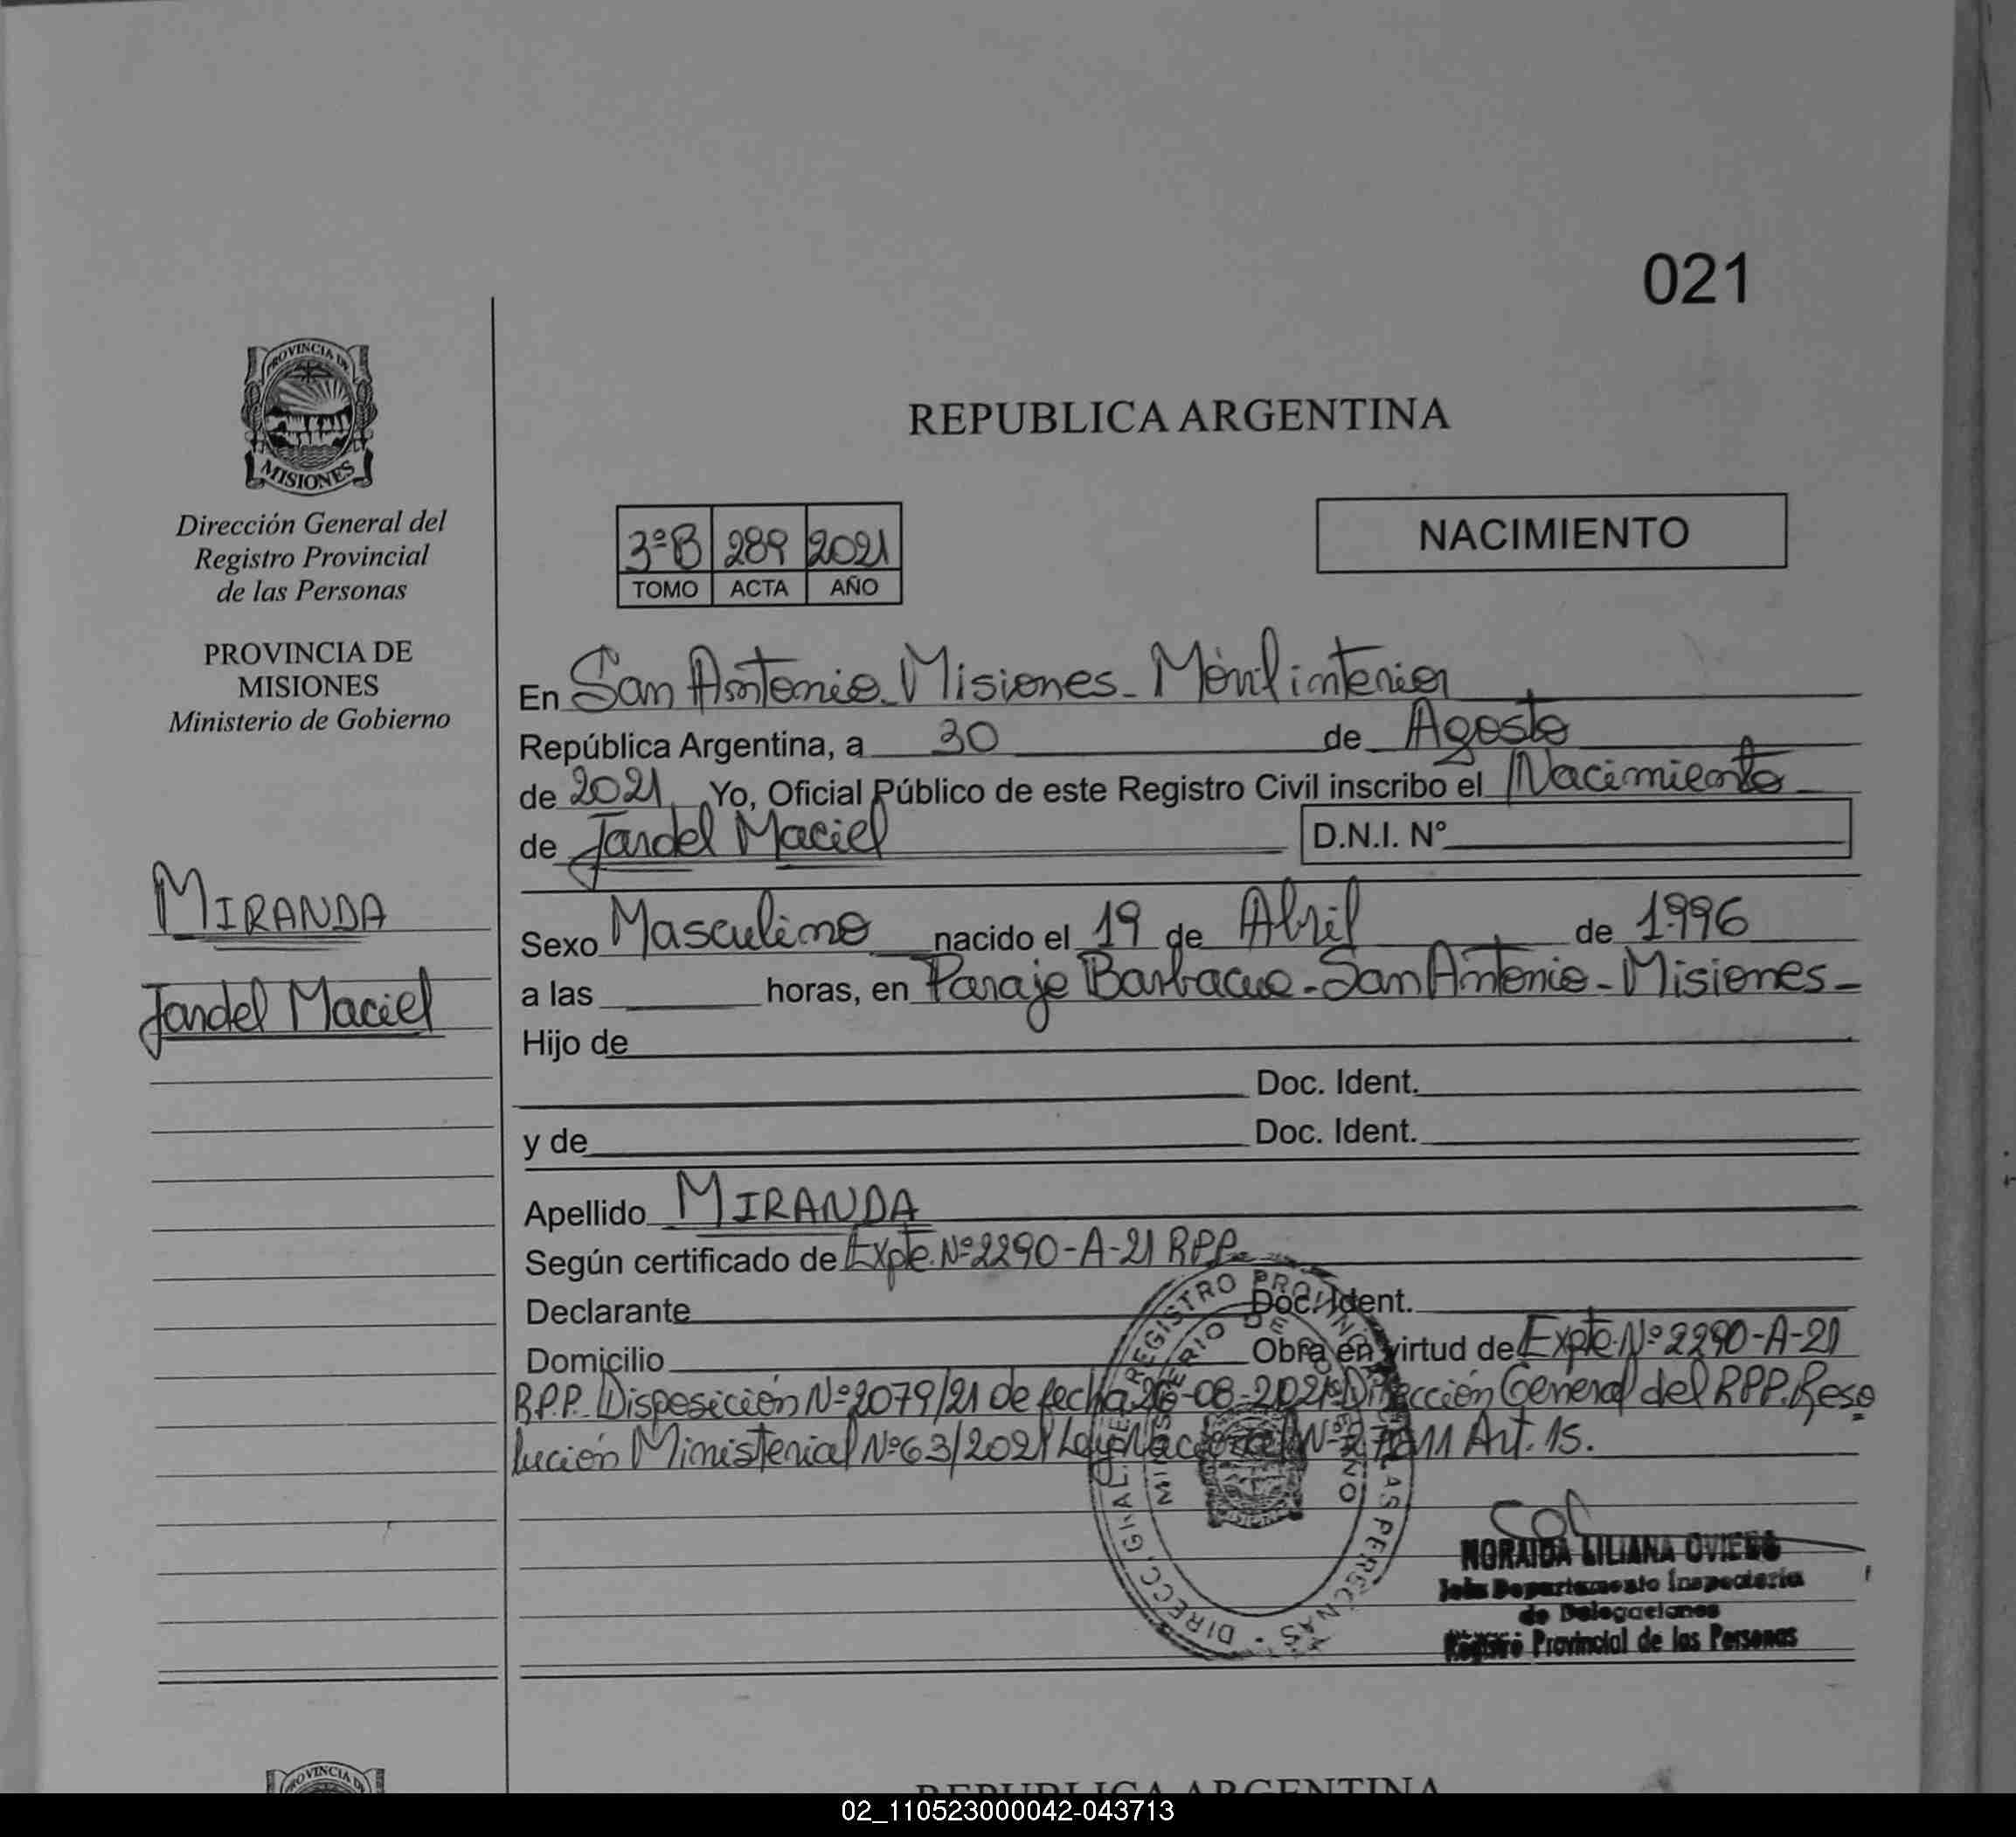 021
PROVINCIA DE
MISIONES
Dirección General del
Registro Provincial
de las Personas
PROVINCIA DE
MISIONES
Ministerio de Gobierno
MIRANDA
Jandel Maciel
REPUBLICA ARGENTINA
3ºB 289 2021
TOMO ACTA AÑO
NACIMIENTO
En San Antonio - Misiones - Móvil interior
República Argentina, a 30 de Agosto
de 2021 Yo, Oficial Público de este Registro Civil inscribo el Nacimiento
de Jandel Maciel D.N.I. Nº
Sexo Masculino nacido el 19 de Abril de 1.996
a las horas, en Paraje Barbacuo - San Antonio - Misiones -
Hijo de
Doc. Ident.
y de Doc. Ident.
Apellido MIRANDA
Según certificado de Expte. Nº 2290-A-21 RPP.
Declarante Doc. Ident.
Domicilio Obra en virtud de Expte. Nº 2290-A-21
R.P.P. Disposición Nº 2079/21 de fecha 26-08-2021 Dirección General del RPP. Reso
lución Ministerial Nº 63/2021 Ley Nacional Nº 27611 Art. 15.
DIRECC. GRAL. REGISTRO PROVINCIAL DE LAS PERSONAS
MINISTERIO DE GOBIERNO
NORAIDA LILIANA OVIEDO
Jefa Departamento Inspectoria
de Delegaciones
Registro Provincial de las Personas
PROVINCIA DE
REPUBLICA ARGENTINA
02_110523000042-043713